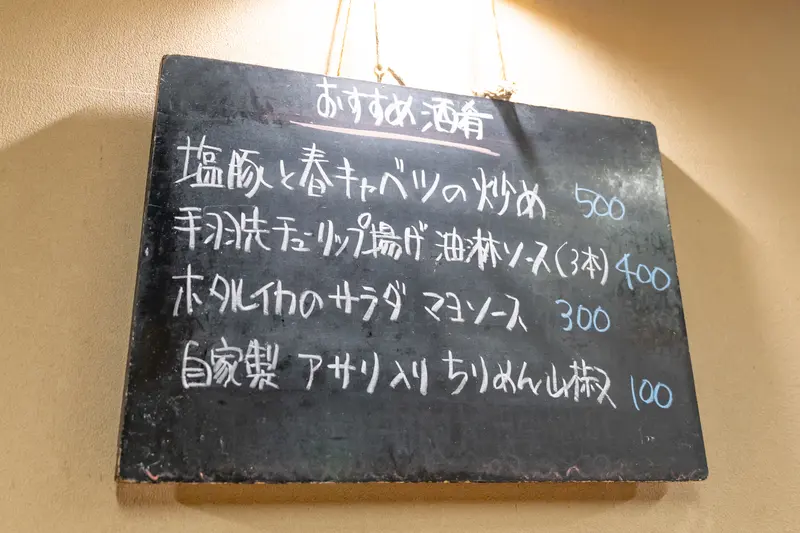 おすすめ酒肴
塩豚と春キャベツの炒め 500
手羽先チューリップ揚げ 油淋ソース(3本) 400
ホタルイカのサラダ マヨソース 300
自家製 アサリ入り ちりめん山椒 100